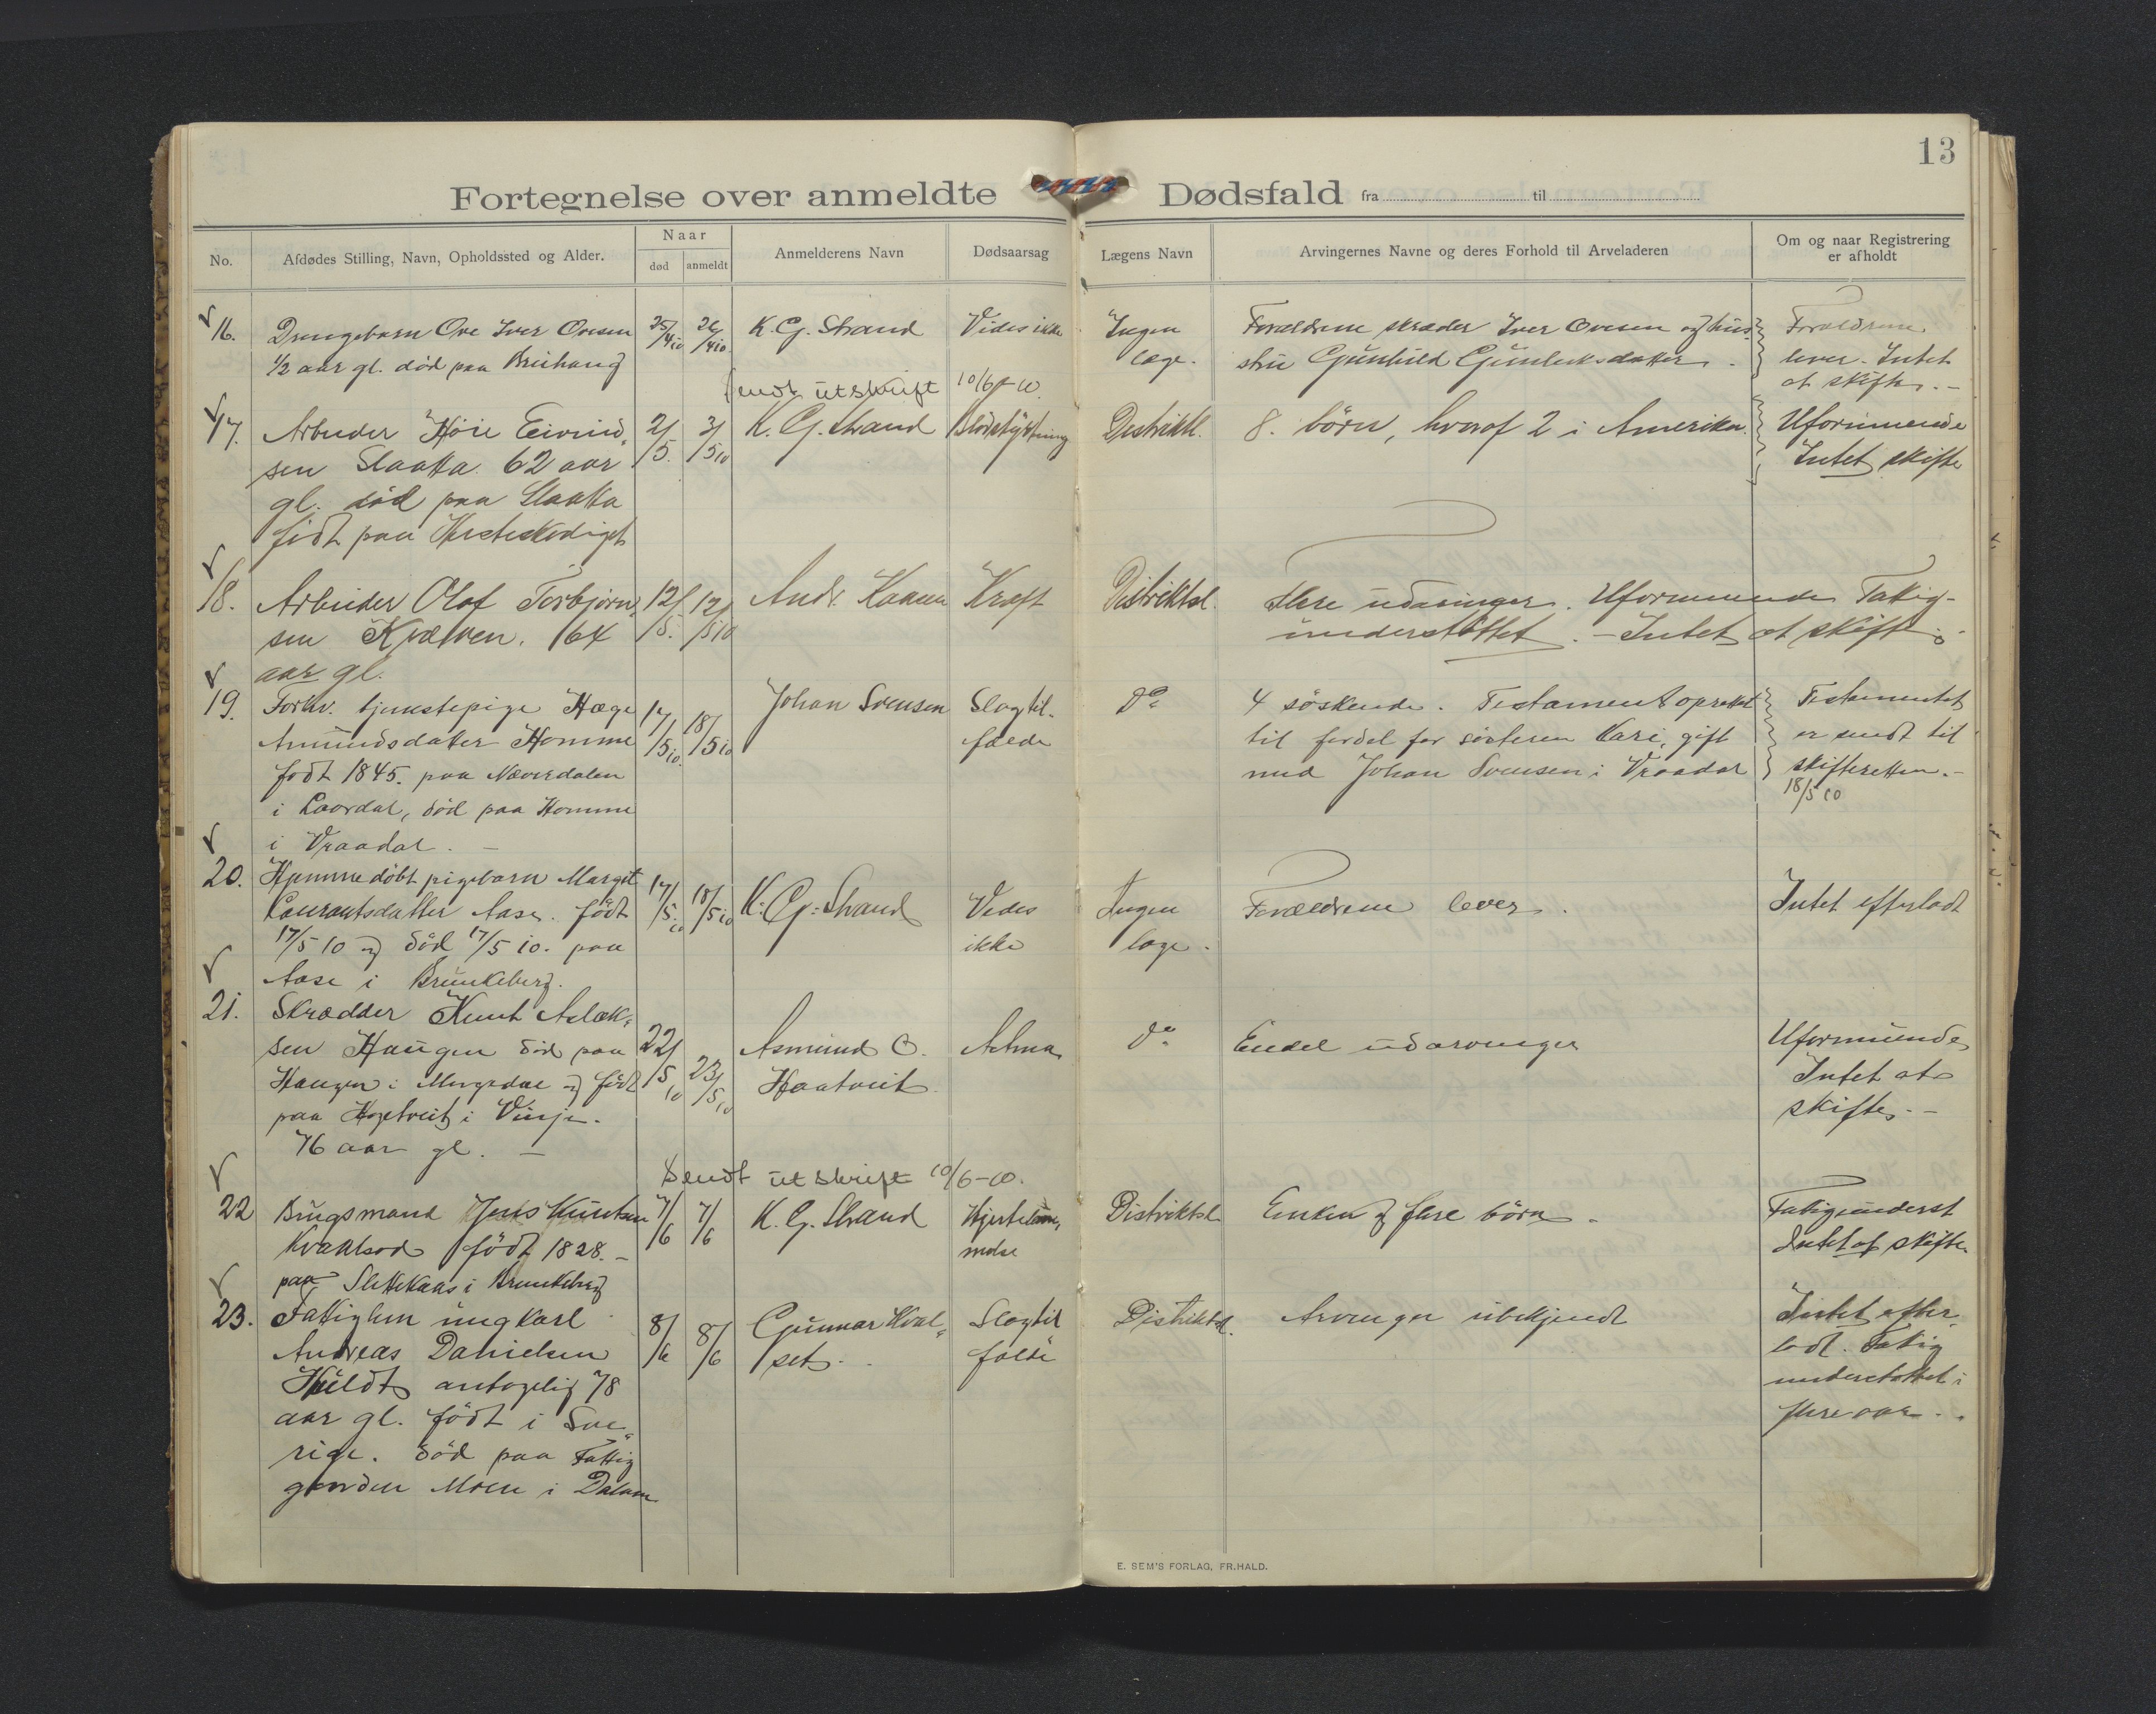 13
Fortegnelse over anmeldte Dødsfald fra til
No.
Afdødes Stilling, Navn, Opholdssted og Alder.
Naar
død
anmeldt
Anmelderens Navn
Dødsaarsag
Lægens Navn
Arvingernes Navne og deres Forhold til Arveladeren
Om og naar Registrering
er afholdt
16.
Drengebarn Ove Iver Ovesen
1/2 aar gl. død paa
25/4 10
26/4 10
K. G. Strand
Vides ikke
Ingen
læge.
Forældrene skræder Iver Ovesen og hus-
stru Gunhild Gunleiksdatter.
Forældrene
lever. Intet
at skifte. -
Sendt utskrift 10/6-10.
17.
Arbeider Eivind-
sen Slaatta. 62 aar
gl. død paa Slaatta
født paa
2/5.
3/5 10
K. G. Strand
Blodstyrtning
Distriktl.
8. börn, hvoraf 2 i Amerika.
Uformuende
Intet skifte
18.
Arbeider Olof Torbjörn-
sen 64
aar gl.
12/5.
12/5 10
Andr.
Kræft
Distriktsl.
flere udarvinger. Uformuende Fatig-
understöttet. - Intet at skifte.
19.
Forhv. tjenestepige Hæge
Amundsdatter Homme
født 1845. paa Næverdalen
i Laardal, död paa Homme
i Vraadal. -
17/5 10.
18/5 10
Johan Svensen
Slagtil-
fælde
do
4 söskende. Testament oprettet
til fordel for sösteren Kari, gift
med Johan Svensen i Vraadal
Testamentet
er sendt til
skifteretten. -
18/5 10
20.
Hjemmedöbt pigebarn Margit
Lauantsdatter Aase. födt
17/5 10 og död 17/5 10. paa
Aase i Brunkeberg.
17/5. 10
18/5 10
K. G. Strand
Vides
ikke
Ingen
læge.
Forældrene lever.
Intet efterladt
21.
Skrædder Knut Aslak-
sen Haugen död paa
Haugen i Morgedal og födt
paa i Vinje.
76 aar gl. -
22/5 10
23/5 10
Asmund O.
Haatveit
Astma
do
Endel udarvinger
Uformuende
Intet at
skifte. -
Sendt utskrift 10/6-10.
22
Brugsmand Jens Knutsen
født 1828. -
paa Slettekaas i Brunkeberg
7/6
7/6
K. G. Strand
Hjertelam-
melse
Distriktsl.
Enken og flere börn.
Fatigunderst
Intet at skifte.
23.
Fattiglem ungkarl
Andreas Danielsen
antagelig 78
aar gl. födt i Sve-
rige. död paa Fattig
gaarden Moen i Dalane
8/6
8/6
Gunnar Kval-
set.
Slagtil
fælde
Distriktsl.
Arvinger ubekjendt
Intet efter-
ladt. Fatig
understöttet i
flere aar.
E. SEM'S FORLAG, FR.HALD.